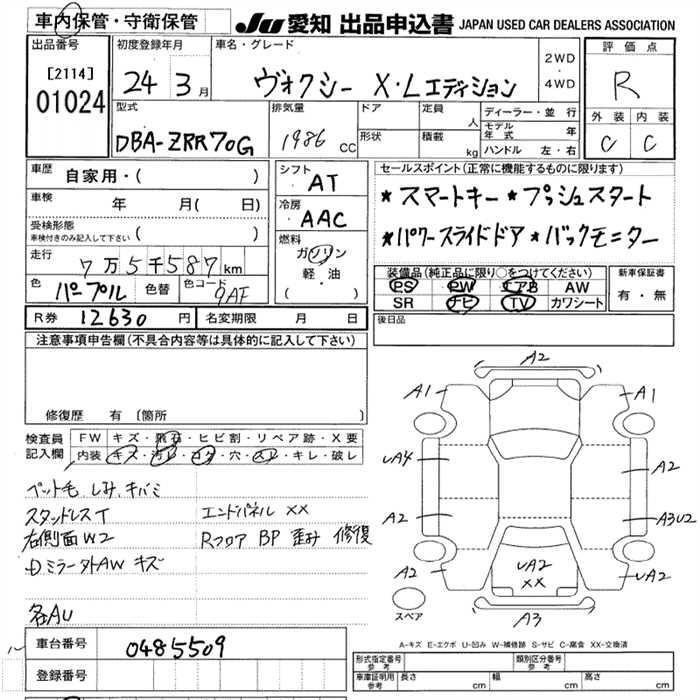 車内保管・守衛保管
JU 愛知 出品申込書 JAPAN USED CAR DEALERS ASSOCIATION
出品番号 初度登録年月 車名・グレード 評価点
[2114] 01024
24 3月 ヴォクシー X・Lエディション 2WD・4WD R
型式 排気量 ドア 定員 人 ディーラー・並行 外装 内装
DBA-ZRR70G 1986 CC 形状 積載 kg モデル年式 年 C C
ハンドル 左・右
車歴 自家用・( ) シフト AT セールスポイント(正常に機能するものに限ります)
車検 年 月( 日) 冷房 AAC ★スマートキー ★プッシュスタート
受検形態 車検付きのみ記入して下さい ( ) 燃料 ガソリン 軽・油 ( ) ★パワースライドドア ★バックモニター
走行 7万5千587km
色 パープル 色替 色コード 9AF
装備品(純正品に限り○をつけてください) 新車保証書
PS PW エアB AW 有・無
SR ナビ TV カワシート
R券 12630円 名変期限 月 日 後日品
注意事項申告欄(不具合内容等は具体的に記入して下さい)
修復歴 有 〔箇所 〕
検査員記入欄 FW キズ・飛石・ヒビ割・リペア跡・X要
内装 キズ・汚レ・コゲ・穴・スレ・キレ・破レ
ペット毛 しみ、キバミ
スタッドレスT エンドパネル XX
右側面W2 Rフロア BP 歪み 修復
ミラー外AW キズ
各AU
A2
A1 A1
UA4 A2
A2 A3U2
A2 UA2 XX UA2
A3
スペア
A-キズ E-エクボ U-凹み W-補修跡 S-サビ C-腐食 XX-交換済
車台番号 0485509
登録番号
形式指定番号 参考 類別区分番号 参考
車庫証明用 参考 長さ cm 幅 cm 高さ cm